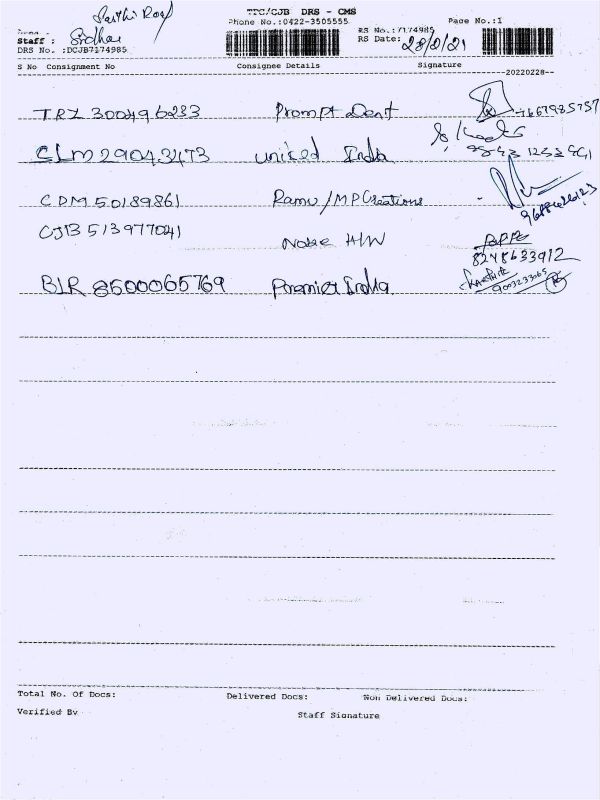 Sathi Road
TTC/CJB DRS - CMS
Phone No.:0422-3505555 Page No.:1
Staff : Sridhar RS No.:7174985
DRS No. :DCJB7174985 RS Date: 28/2/21
S No Consignment No Consignee Details Signature
--20220228--
TRZ 300496233 Prompt Dent 7667985757
CLM 29043473 united India
CDM 50189861 Ramu/MP Creations
CJB 513977041 Noble H/W
8248633912
BLR 8500065769 Premier India 9003233065
Total No. Of Docs: Delivered Docs: Non Delivered Docs:
Verified By Staff Signature